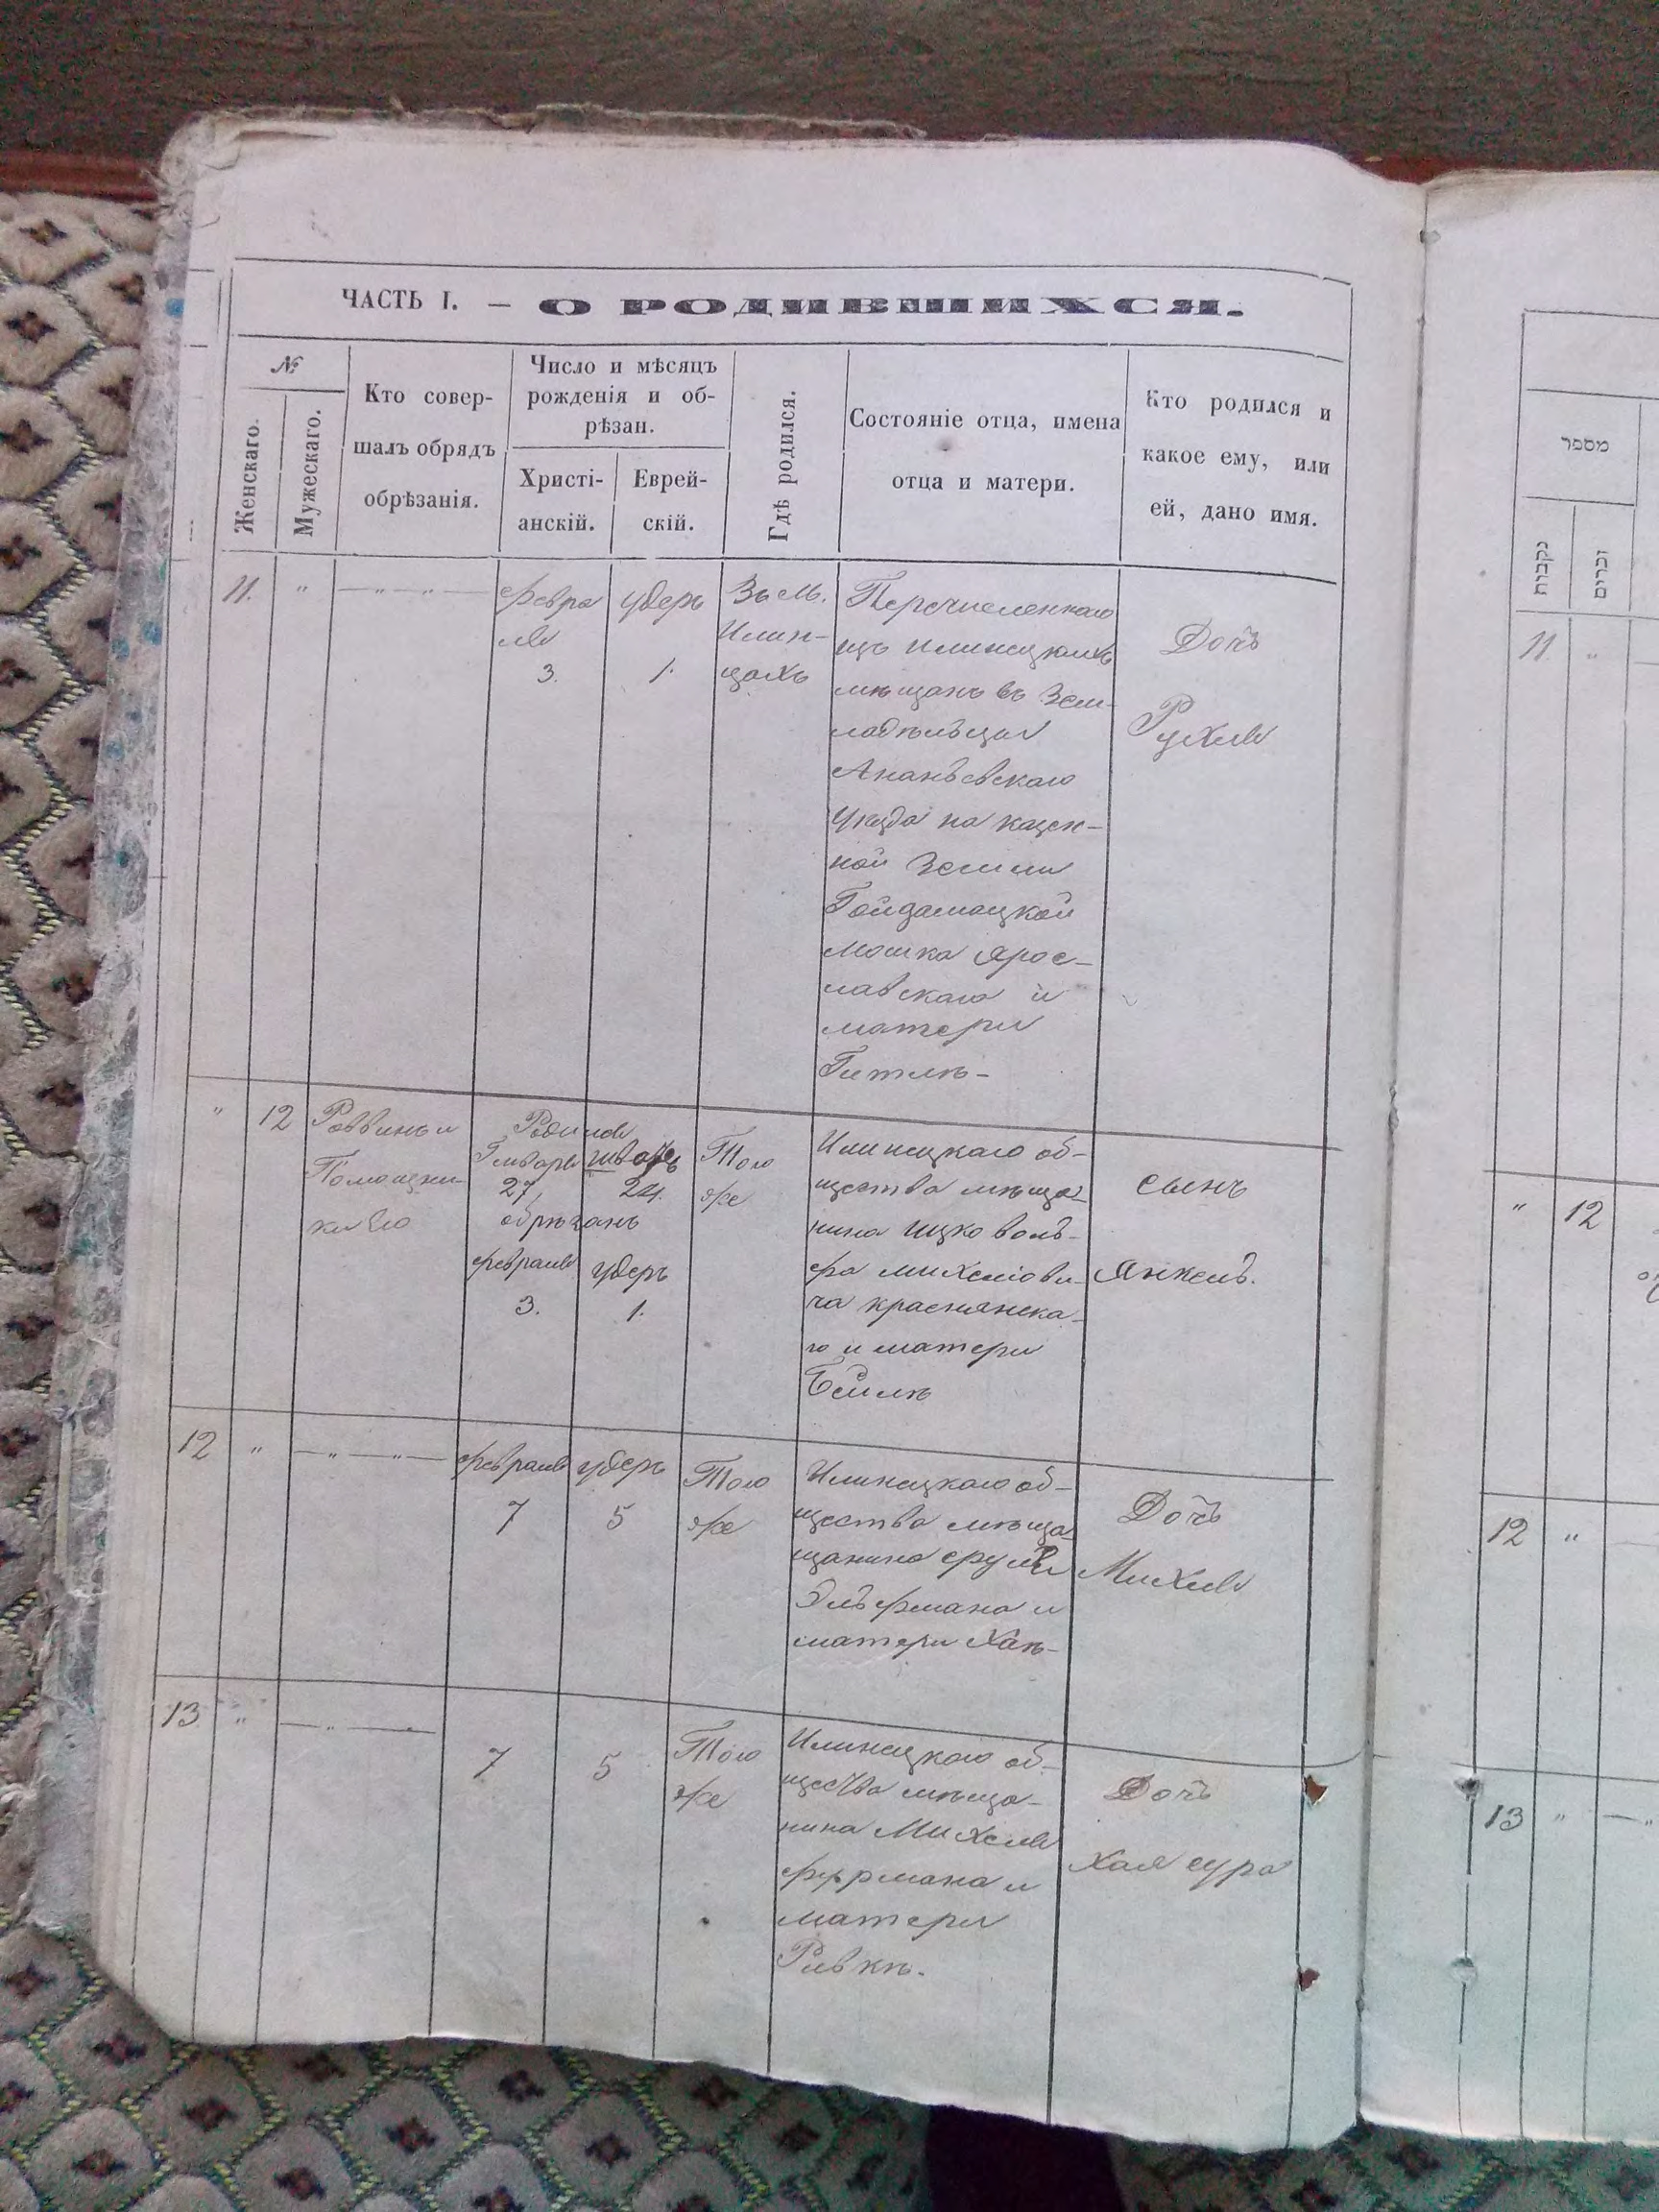 ЧАСТЬ I. — О РОДИВШИХСЯ.
№
Женскаго.
Мужескаго.
Кто совер-
шалъ обрядъ
обрѣзанія.
Число и мѣсяцъ
рожденія и об-
рѣзан.
Христі-
анскій.
Еврей-
скій.
Гдѣ родился.
Состояніе отца, имена
отца и матери.
Кто родился и
какое ему, или
ей, дано имя.
11. " — " — " —
февра
ля
3.
удеръ
1.
Въ м.
Илин-
цахъ
Перечисленнаго
изъ Илинецкихъ
мѣщанъ въ Зем-
ладѣльцы
Ананьевскаго
Уезда на казен-
ной Земли
Гойдамацкой
Мошка Ярос-
лавскаго и
матери
Гитлѣ-
Дочь
Рухля
" 12
Раввинъ и
Помощни-
ки Его
Родился
Январь
27,
шватъ
24.
обрѣзанъ
февраля
3.
удеръ
1.
Того
же
Илинецкаго об-
щества мѣща-
нина Ицко воль-
фа Михелови-
ча краснянска-
го и матери
Бейлѣ
сынъ
Янкель.
12 " — " — " —
февраля
7
удеръ
5
Того
же
Илинецкаго об-
щества мѣща
щанина сруля
Эльфмана и
матери Ханѣ-
Дочь
Михля
13. " — " —
7
5
Того
же
Илинецкаго об-
щества мѣща-
нина Михеля
фурмана и
матери
Ривкѣ.
Дочь
Хая сура
מספר
נקבות
זכרים
11 "
" 12
12 "
13 " — "